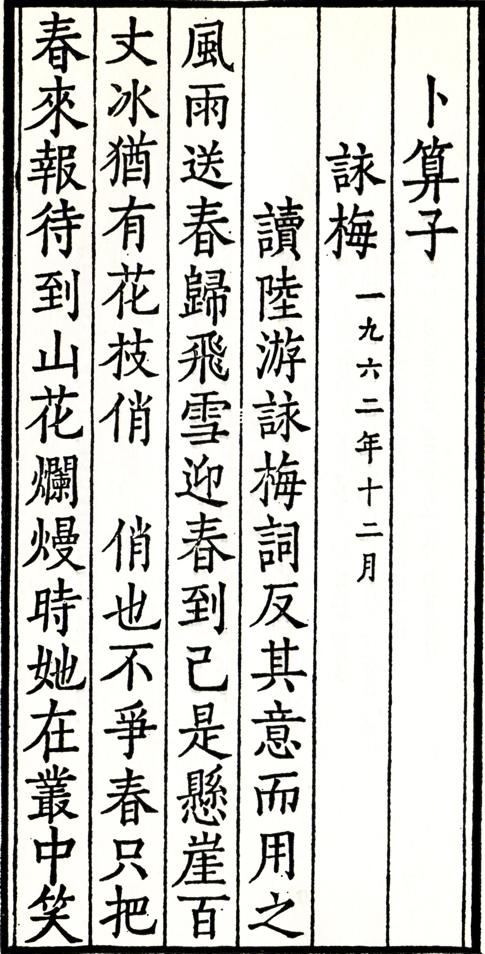 卜算子
詠梅 一九六二年十二月
讀陸游詠梅詞反其意而用之
風雨送春歸飛雪迎春到己是懸崖百
丈冰猶有花枝俏 俏也不爭春只把
春來報待到山花爛熳時她在叢中笑